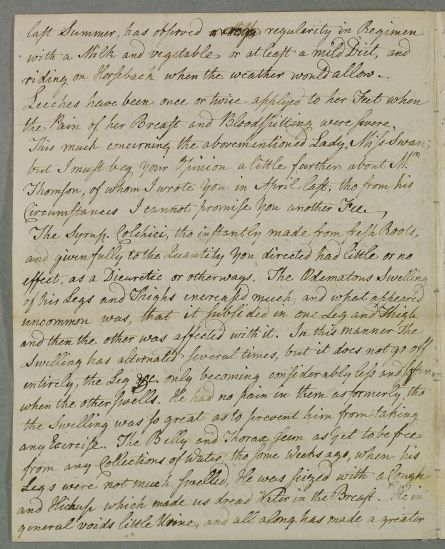 last Summer, has observed a regularity in Regimen
with a Milk and vegetable, or at least a mild Diet, and
riding on Horseback when the weather would allow.
Leeches have been once or twice applyed to her Feet when
the Pain of her Breast and Bloodspitting were severe.
This much concerning the abovementioned Lady, Miss Swan;
but I must beg Your Opinion a little further about Mr.
Thomson, of whom I wrote You in April last, tho from his
Circumstances I cannot promise You another Fee.
The Syrup. Colchici, tho instantly made from fresh Roots,
and given fully to the Quantity You directed had little or no
effect, as a Dieuretic or otherways. The Œdematous Swelling
of his Legs and Thighs encreased much, and what appeared
uncommon was, that it subsided in one Leg and Thigh
and then the other was affected with it. In this manner the
Swelling has alternated several times, but it does not go off
entirely, the Leg &c. only becoming considerably less and
when the other swells. He had no pain in them as formerly, tho
the Swelling was so great as to prevent him from taking
any Exercise. The Belly and Thorax seem as yet to be free
from any Collections of Water, tho some Weeks ago, when his
Legs were not much swelled, He was seized with a Cough
and Hickup which made us dread Water in the Breast. He in
general voids little Urine, and all along has made a greater